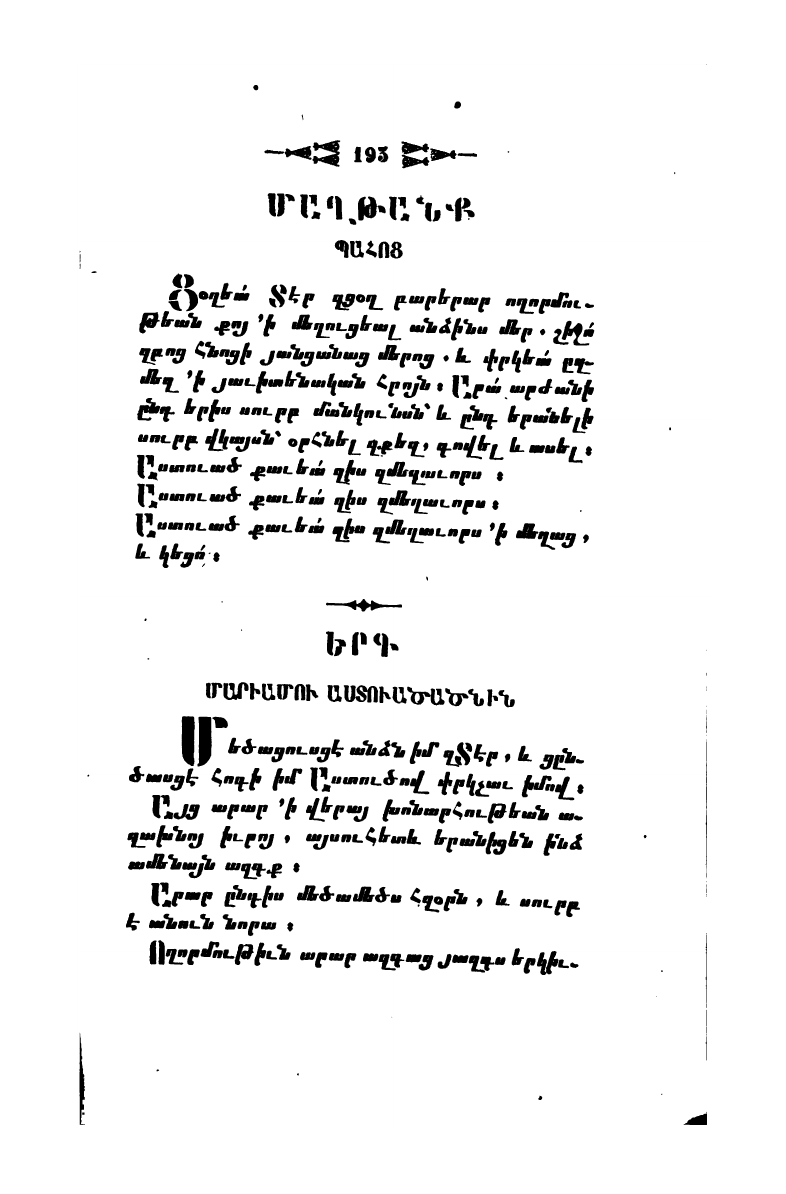 193
ՄԱՂԹԱՆՔ
ՊԱՀՈՑ
Ցօղեա՛ Տէր զցօղ բարերար ողորմու-
թեան քոյ ՚ի մեղուցեալ անձինս մեր . շիջո՛
զբոց Հնոցի յանցանաց մերոց . և փրկեա՛ ըզ-
մեզ ՚ի յաւիտենական Հրոյն ։ Արա՛ արժանի
ընդ երիս սուրբ մանկունսն՝ և ընդ երանելի
սուրբ վկայսն՝ օրՀնել զքեզ , գովել և ասել ։
Աստուած քաւեա՛ զիս զմեղաւորս ։
Աստուած քաւեա՛ զիս զմեղաւորս ։
Աստուած քաւեա՛ զիս զմեղաւորս ՚ի մեղաց ,
և կեցո՛ ։
ԵՐԳ
ՄԱՐԻԱՄՈՒ ԱՍՏՈՒԱԾԱԾՆԻՆ
Մեծացուսցէ անձն իմ զՏէր , և ցըն-
ծասցէ Հոգի իմ Աստուծով փրկչաւ իմով ։
Այց արար ՚ի վերայ խոնարՀութեան ա-
ղախնոյ իւրոյ , այսուՀետև երանիցեն ի՛նձ
ամենայն ազգ.ք ։
Արար ընդիս մեծամեծս Հզօրն , և սուրբ
է անուն նորա ։
Ողորմութիւն արար ազգաց յազգս երկիւ-